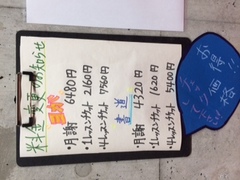 料金変更のお知らせ
・月謝 6480円
・1レッスンチケット 2160円
・4レッスンチケット 7560円
書道
・月謝 4320円
・1レッスンチケット 1620円
・4レッスンチケット 5400円
お得!!
価格